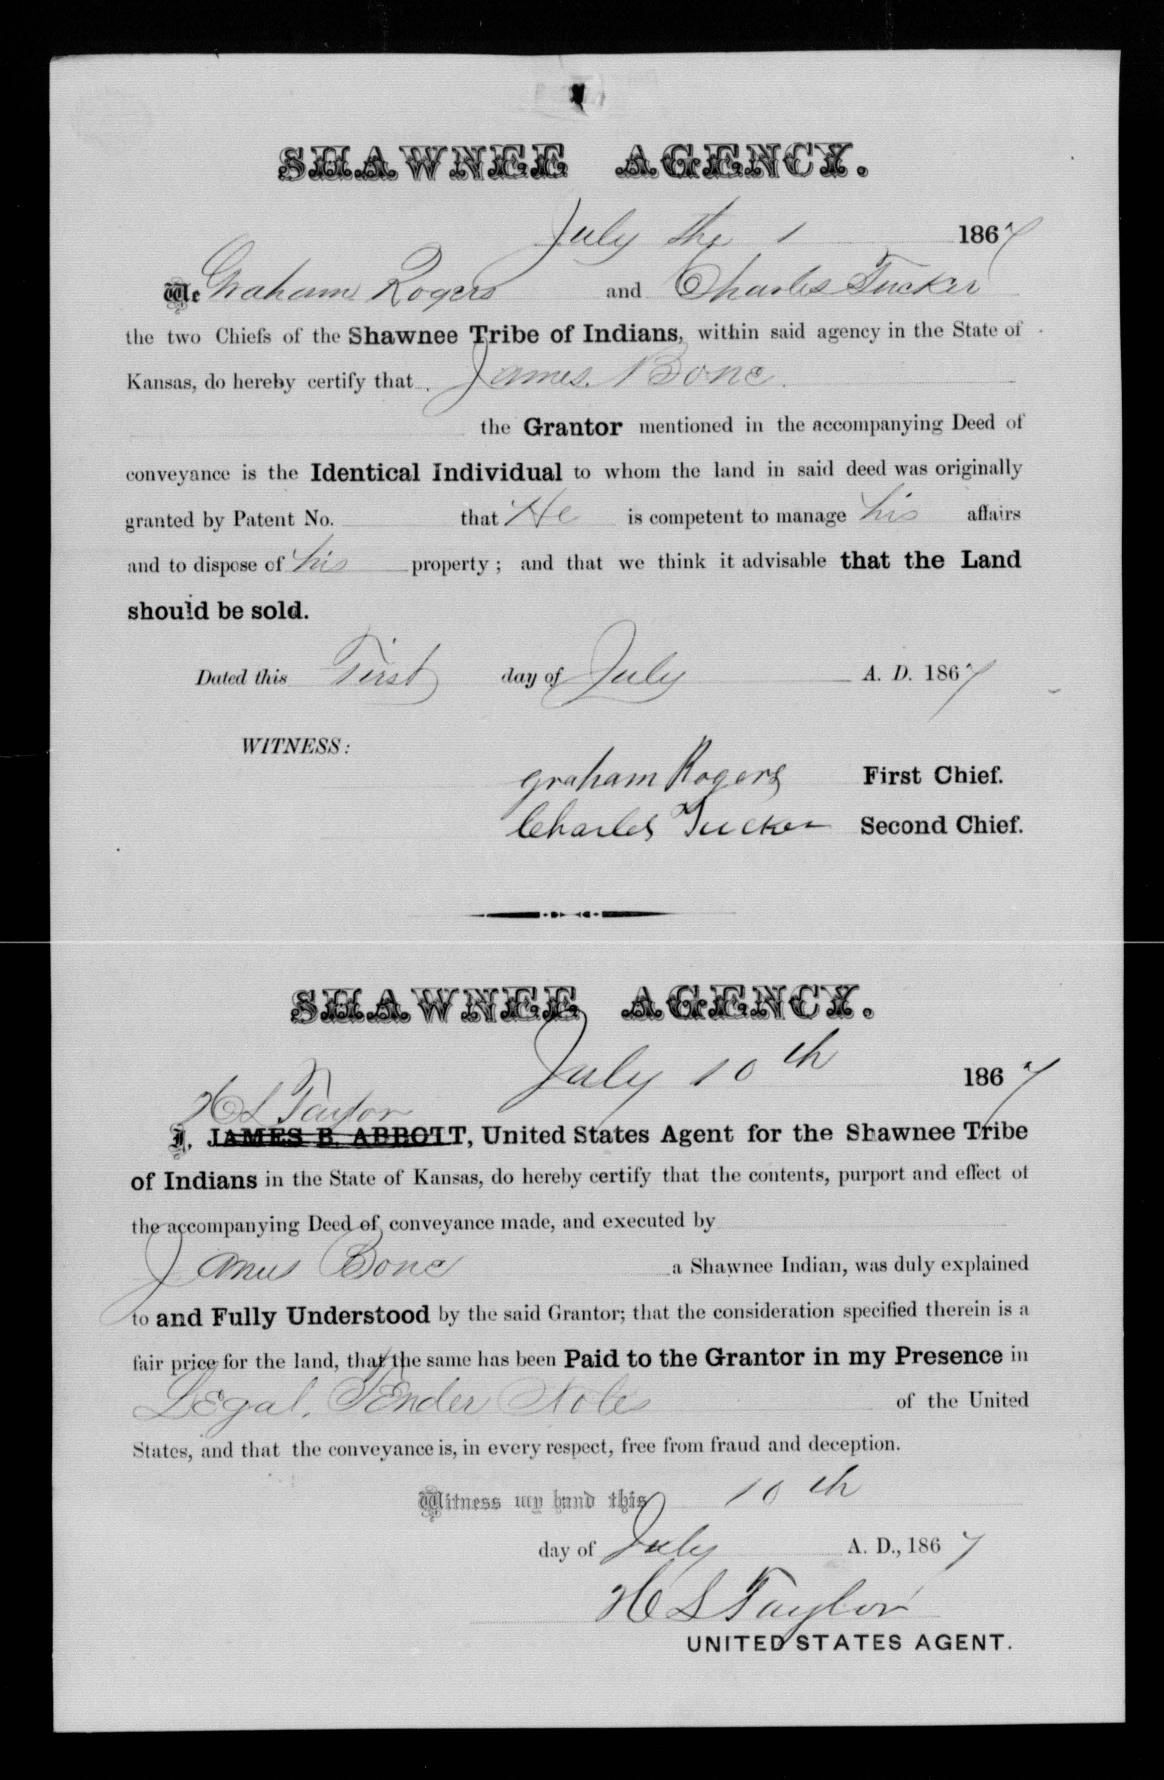 SHAWNEE AGENCY.
July the 1 1867
We Graham Rogers and Charles Tucker
the two Chiefs of the Shawnee Tribe of Indians, within said agency in the State of
Kansas, do hereby certify that James Bone
the Grantor mentioned in the accompanying Deed of
conveyance is the Identical Individual to whom the land in said deed was originally
granted by Patent No. that He is competent to manage his affairs
and to dispose of his property; and that we think it advisable that the Land
should be sold.
Dated this First day of July A. D. 1867
WITNESS:
graham Rogers First Chief.
Charles Tucker Second Chief.
SHAWNEE AGENCY.
July 10th 1867
H S Taylor
I, JAMES B. ABBOTT, United States Agent for the Shawnee Tribe
of Indians in the State of Kansas, do hereby certify that the contents, purport and effect of
the accompanying Deed of conveyance made, and executed by
James Bone a Shawnee Indian, was duly explained
to and Fully Understood by the said Grantor; that the consideration specified therein is a
fair price for the land, that the same has been Paid to the Grantor in my Presence in
Legal Tender Notes of the United
States, and that the conveyance is, in every respect, free from fraud and deception.
Witness my hand this 10th
day of July A. D., 1867
H S Taylor
UNITED STATES AGENT.